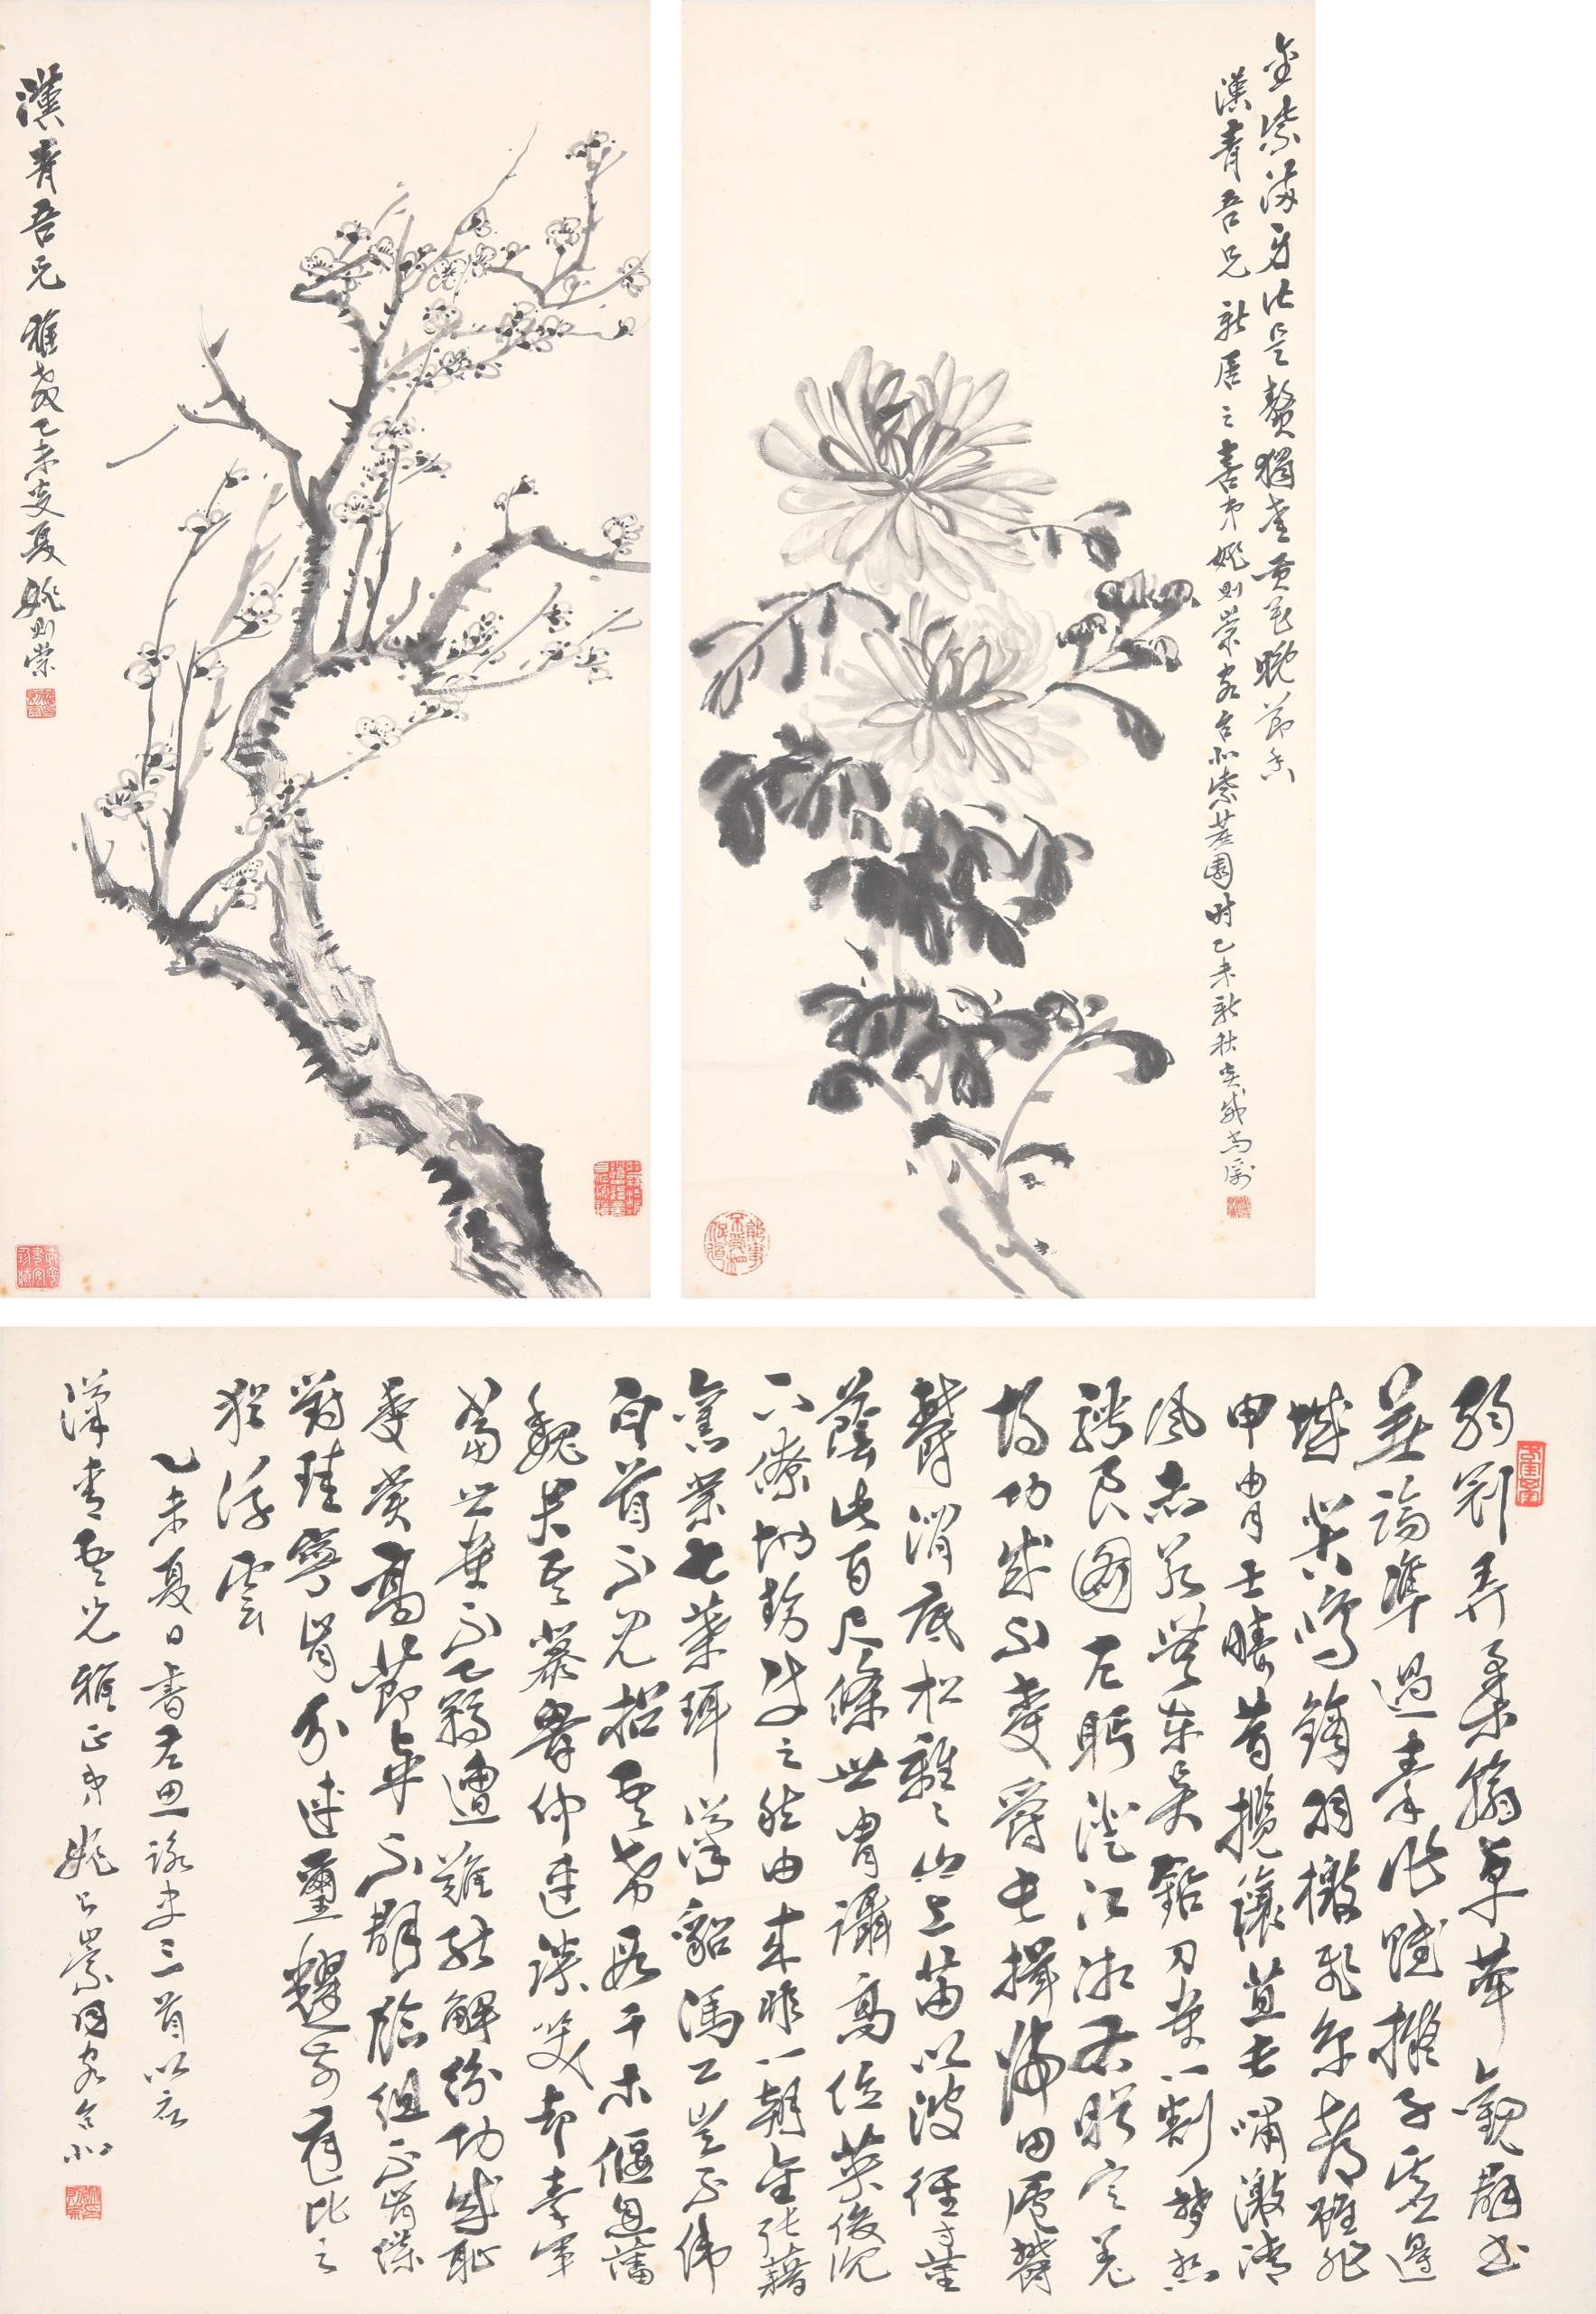 漢青吾兄雅教乙未夏姚則崇
金紫滿身皆是贅獨黃花晚節香
漢青吾兄新居之喜弟姚則崇客台北紫園時乙未新秋
弱冠弄柔翰卓犖觀群書
著論準過秦作賦擬子虛邊
城苦鳴鏑羽檄飛京都雖非
甲冑士疇昔攬穰苴長嘯激清
風志若無東吳鉛刀貴一割夢想
騁良圖左眄澄江湘右盼定羌
胡功成不受爵長揖歸田廬鬱
鬱澗底松離々山上苗以彼徑寸莖
蔭此百尺條世冑躡高位英俊沉
下僚地勢使之然由來非一朝金張藉
舊業七葉珥漢貂馮公豈不偉
白首不見招吾希段干木偃息藩
魏君吾慕魯仲連談笑却秦軍
當世貴不羈遭難能解紛功成恥
受賞高節卓不群臨組不肯緤
對珪寧肯分連璽耀前庭比之
猶浮雲
乙未夏日書左思詠史三首以應
漢青吾兄雅正弟姚則崇同客台北